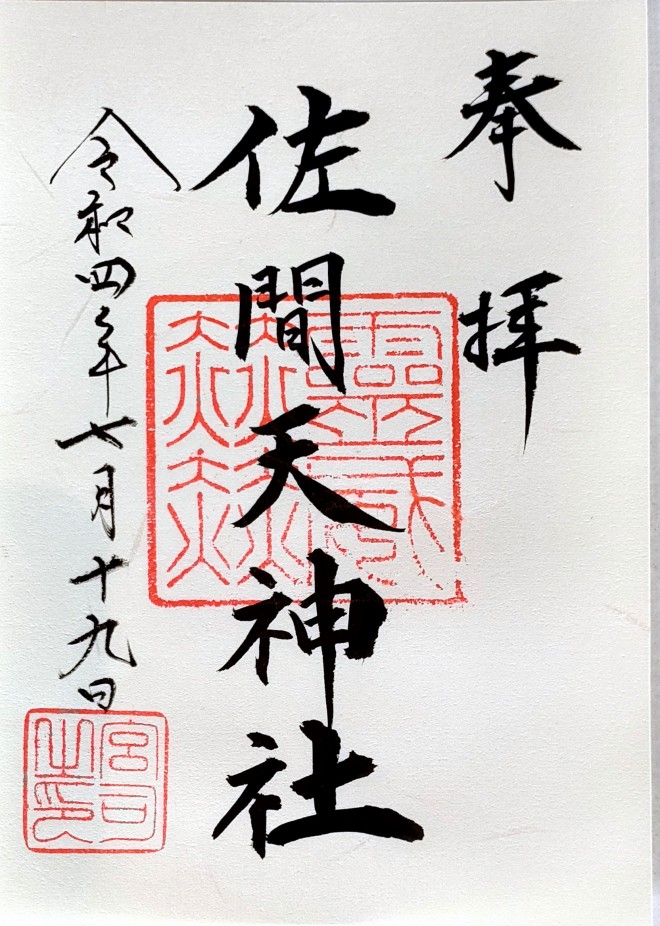 奉拝
佐間天神社
令和四年七月十九日
宮司之印